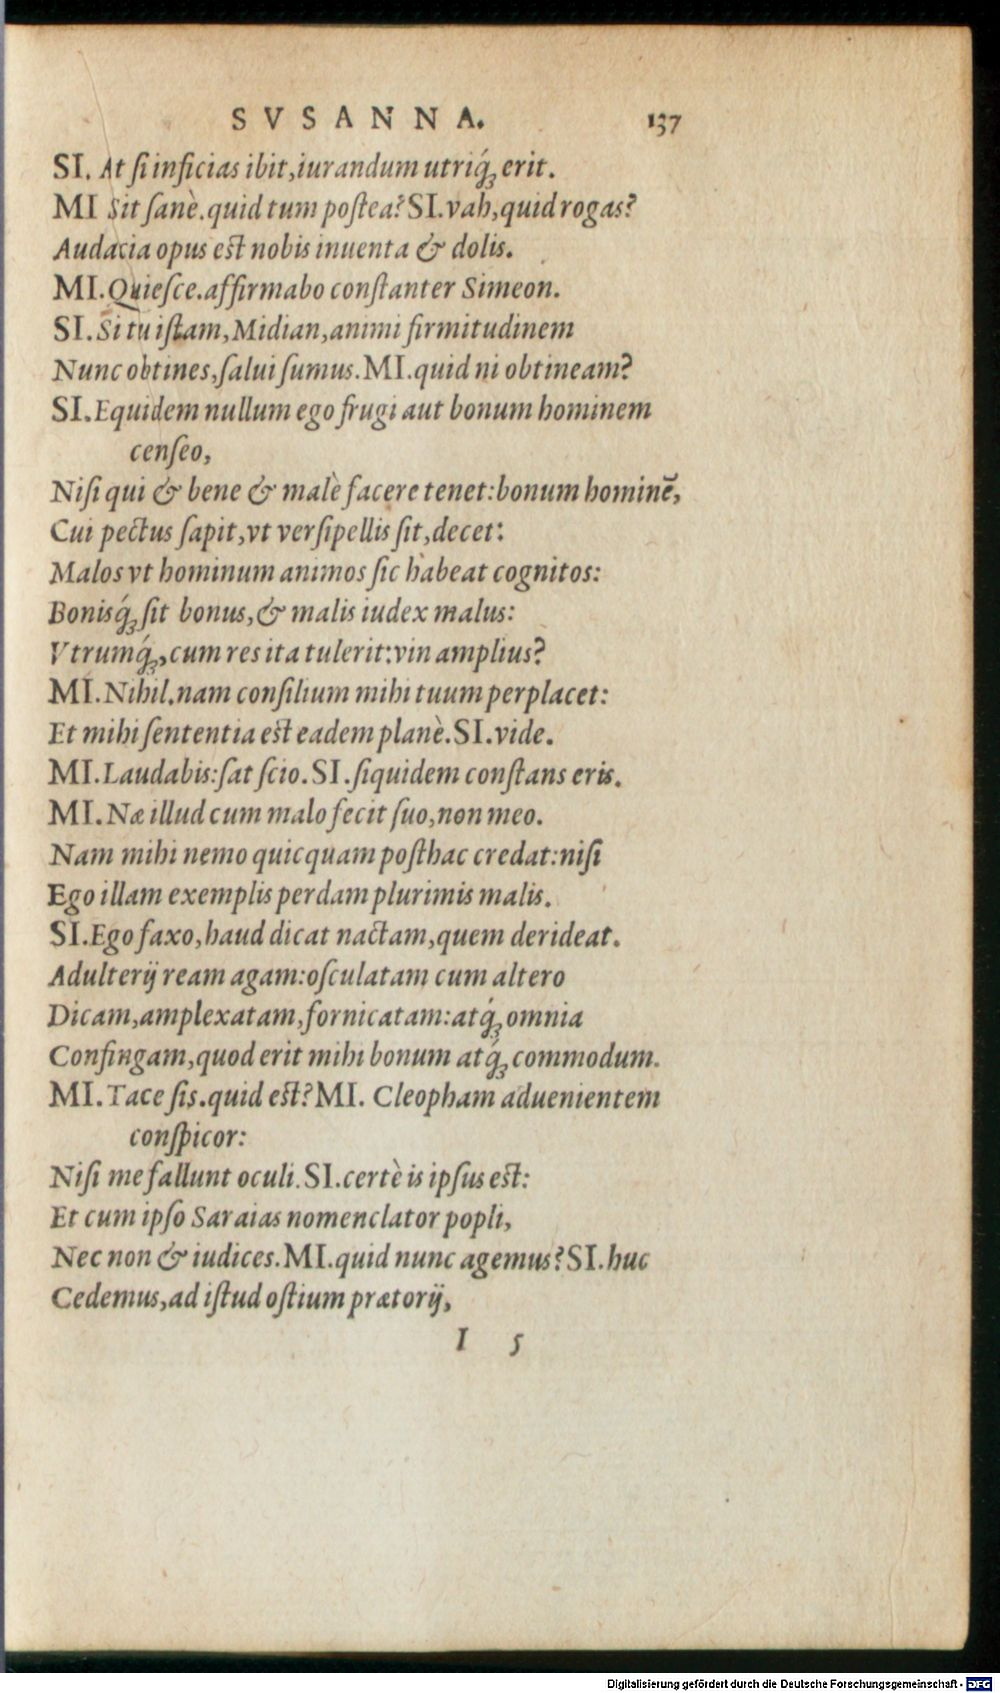 SVSANNA. 137
SI. At ſi inficias ibit, iurandum utriq́ꝫ erit.
MI Sit ſanè. quid tum poſtea? SI. vah, quid rogas?
Audacia opus est nobis inuenta & dolis.
MI. Quieſce. affirmabo conſtanter Simeon.
SI. Si tu iſtam, Midian, animi firmitudinem
Nunc obtines, ſalui ſumus. MI. quid ni obtineam?
SI. Equidem nullum ego frugi aut bonum hominem
cenſeo,
Niſi qui & bene & malè facere tenet: bonum hominē,
Cui pectus ſapit, vt verſipellis ſit, decet:
Malos vt hominum animos ſic habeat cognitos:
Bonisq́ꝫ ſit bonus, & malis iudex malus:
Vtrumq́ꝫ, cum res ita tulerit: vin amplius?
MI. Nihil. nam conſilium mihi tuum perplacet:
Et mihi ſententia est eadem planè. SI. vide.
MI. Laudabis: ſat ſcio. SI. ſiquidem conſtans eris.
MI. Næ illud cum malo fecit ſuo, non meo.
Nam mihi nemo quicquam poſthac credat: niſi
Ego illam exemplis perdam plurimis malis.
SI. Ego faxo, haud dicat nactam, quem derideat.
Adulterij ream agam: oſculatam cum altero
Dicam, amplexatam, fornicatam: atq́ꝫ omnia
Confingam, quod erit mihi bonum atq́ꝫ commodum.
MI. Tace ſis. quid est? MI. Cleopham aduenientem
conſpicor:
Niſi me fallunt oculi. SI. certè is ipſus est:
Et cum ipſo Saraias nomenclator popli,
Nec non & iudices. MI. quid nunc agemus? SI. huc
Cedemus, ad iſtud oſtium prætorij,
I 5
Digitalisierung gefördert durch die Deutsche Forschungsgemeinschaft - DFG